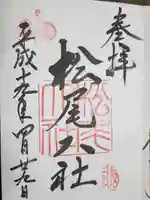 奉拝
松尾大社
平成十六年四月廿八日